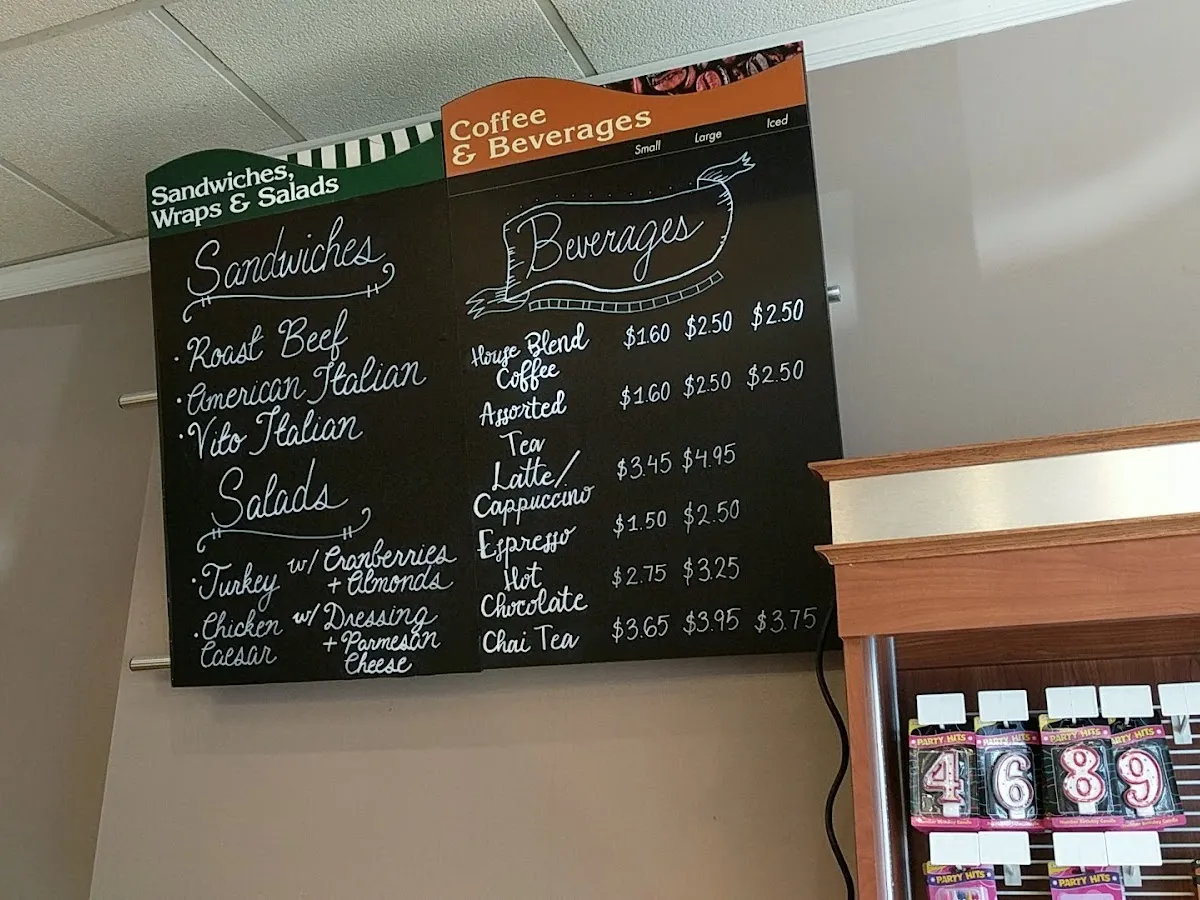 Sandwiches,
Wraps & Salads
Sandwiches
· Roast Beef
· American Italian
· Vito Italian
Salads
· Turkey w/ Cranberries
+ Almonds
· Chicken w/ Dressing
Caesar + Parmesan
Cheese
Coffee
& Beverages
Small Large Iced
Beverages
House Blend $1.60 $2.50 $2.50
Coffee
Assorted $1.60 $2.50 $2.50
Tea
Latte/ $3.45 $4.95
Cappuccino
Espresso $1.50 $2.50
Hot $2.75 $3.25
Chocolate
Chai Tea $3.65 $3.95 $3.75
PARTY HITS
4
Number Birthday Candle
PARTY HITS
6
PARTY HITS
8
Number Birthday Candle
PARTY HITS
9
Number Birthday Candle
PARTY HITS
PARTY HITS